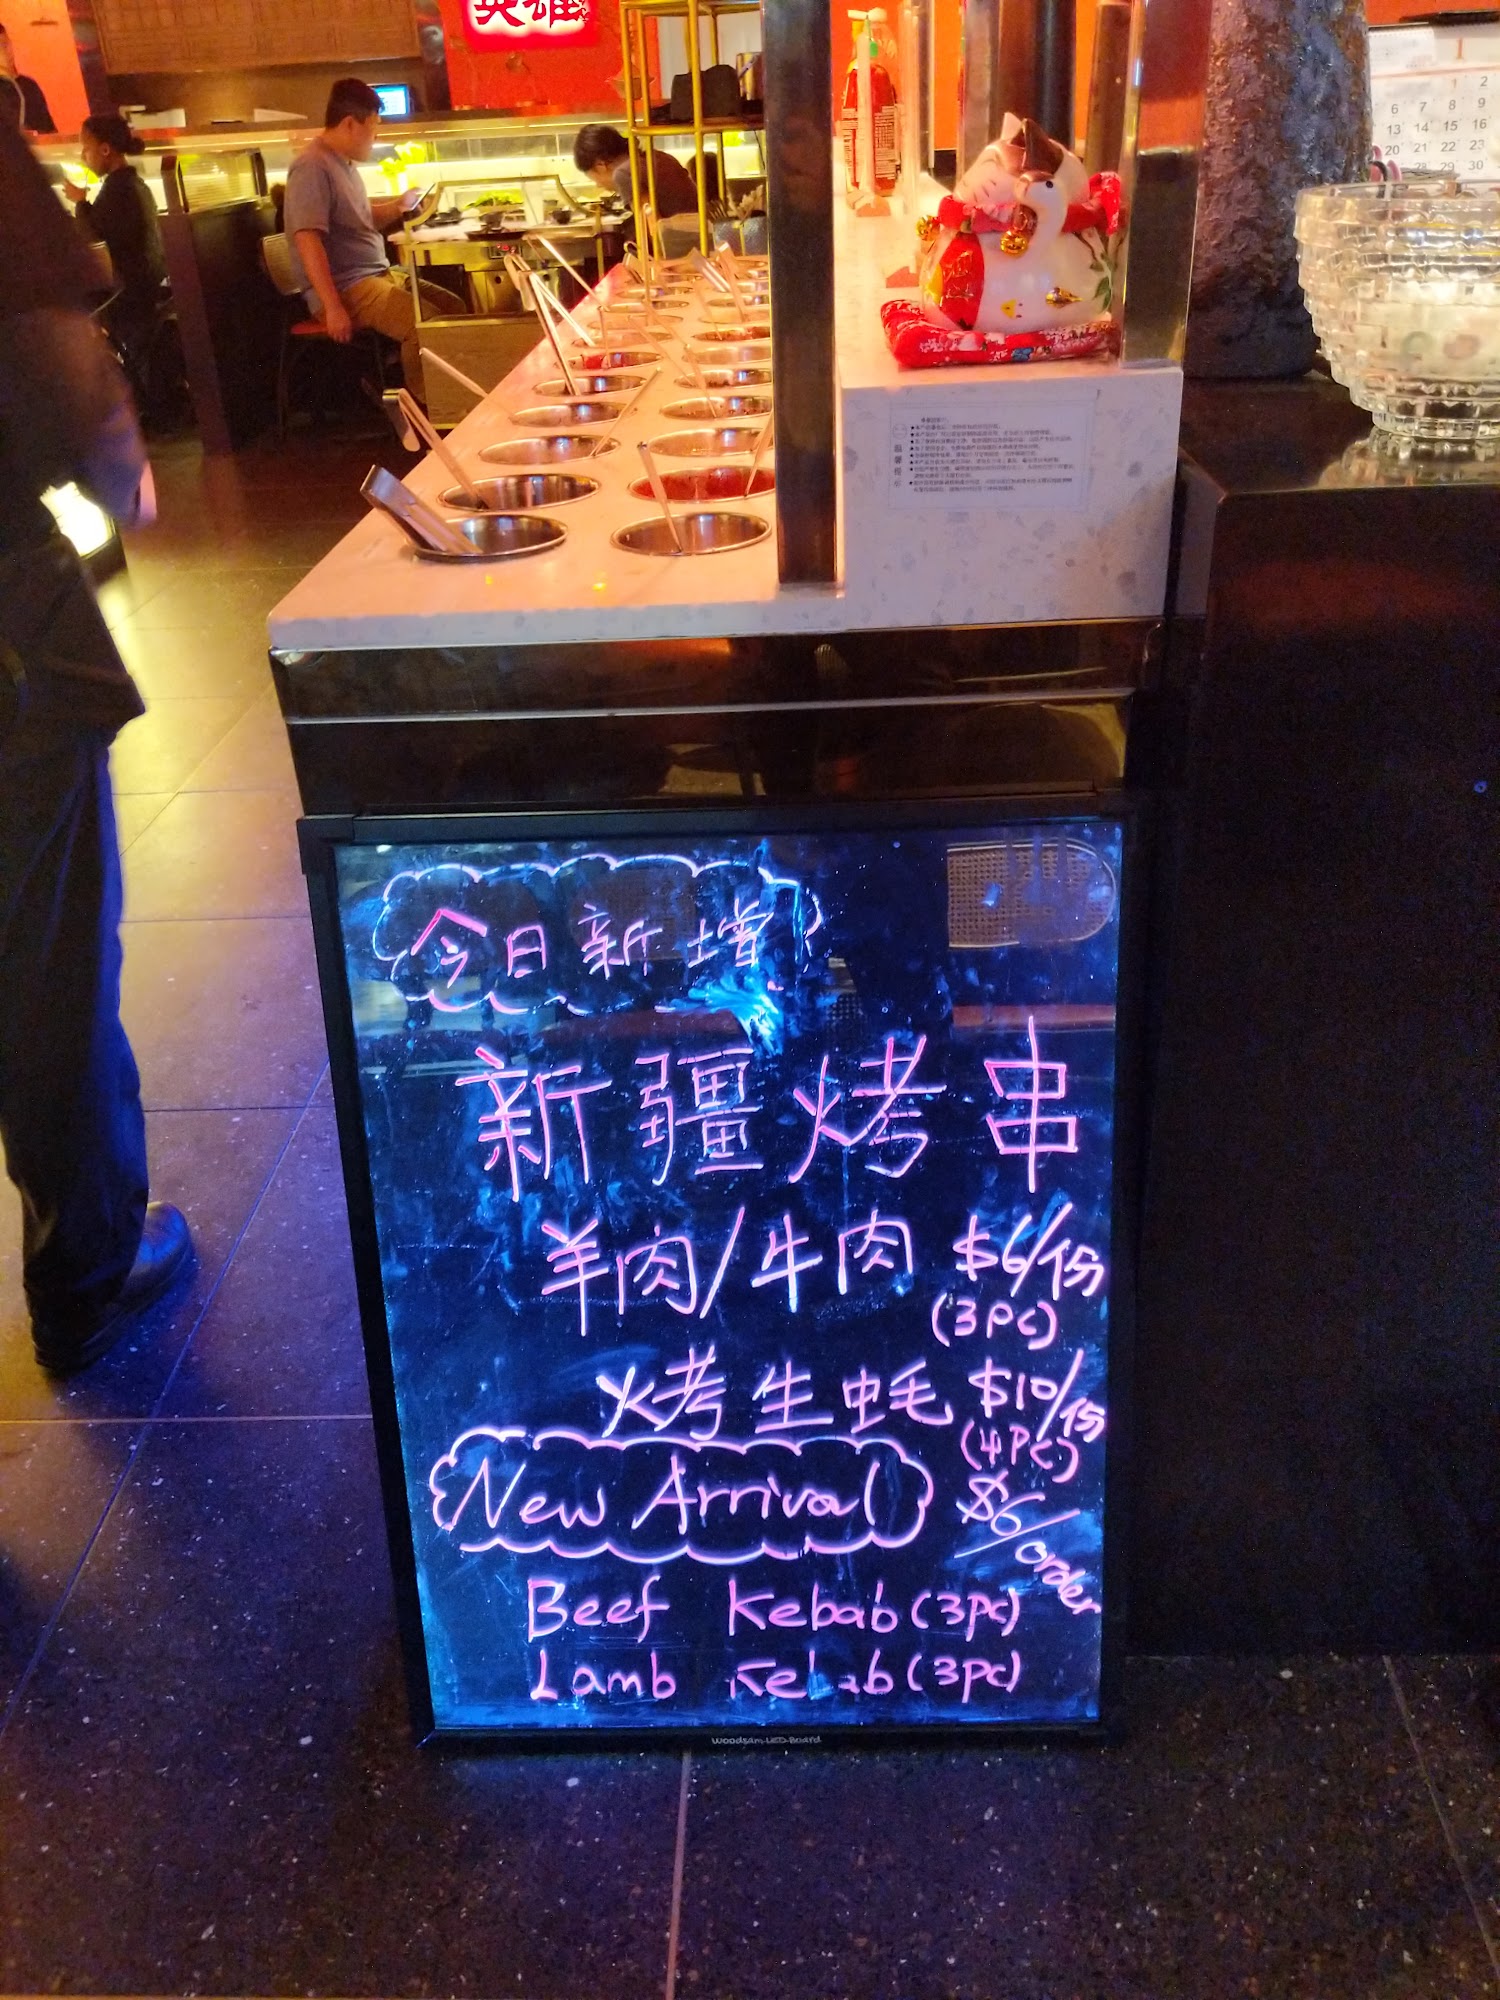 英雄
1
2
6 7 8 9
13 14 15 16
20 21 22 23
28 29 30
温馨提示
今日新增
新疆烤串
羊肉/牛肉 $6/份
(3PC)
烤生蚝 $10/份
(4PC)
New Arrival $6/order
Beef Kebab (3pc)
Lamb Kebab (3pc)
Woodsam-LED-Board